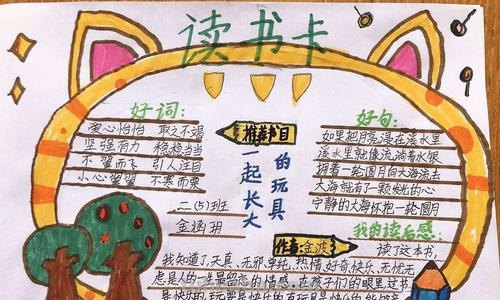 读书卡
好词：
爱心怡怡 取之不竭
坚强有力 稳稳当当
不翼而飞 引人注目
小心翼翼 不寒而栗
二(5)班
金涵玥
推荐书目
一起长大
的玩具
作者:金波
好句：
如果把月亮浸在溪水里
溪水里就像流淌着水银
拥着一轮圆月向大海流去
大海就有了一颗发光的心
宁静的大海怀抱一轮圆月
我的读后感：
读了这本书，
我知道了天真、无邪、单纯、热情、好奇、快乐、无忧无
虑是人的一生最留恋的情感，在孩子们的眼里过书
是快乐的，玩耍是快乐的